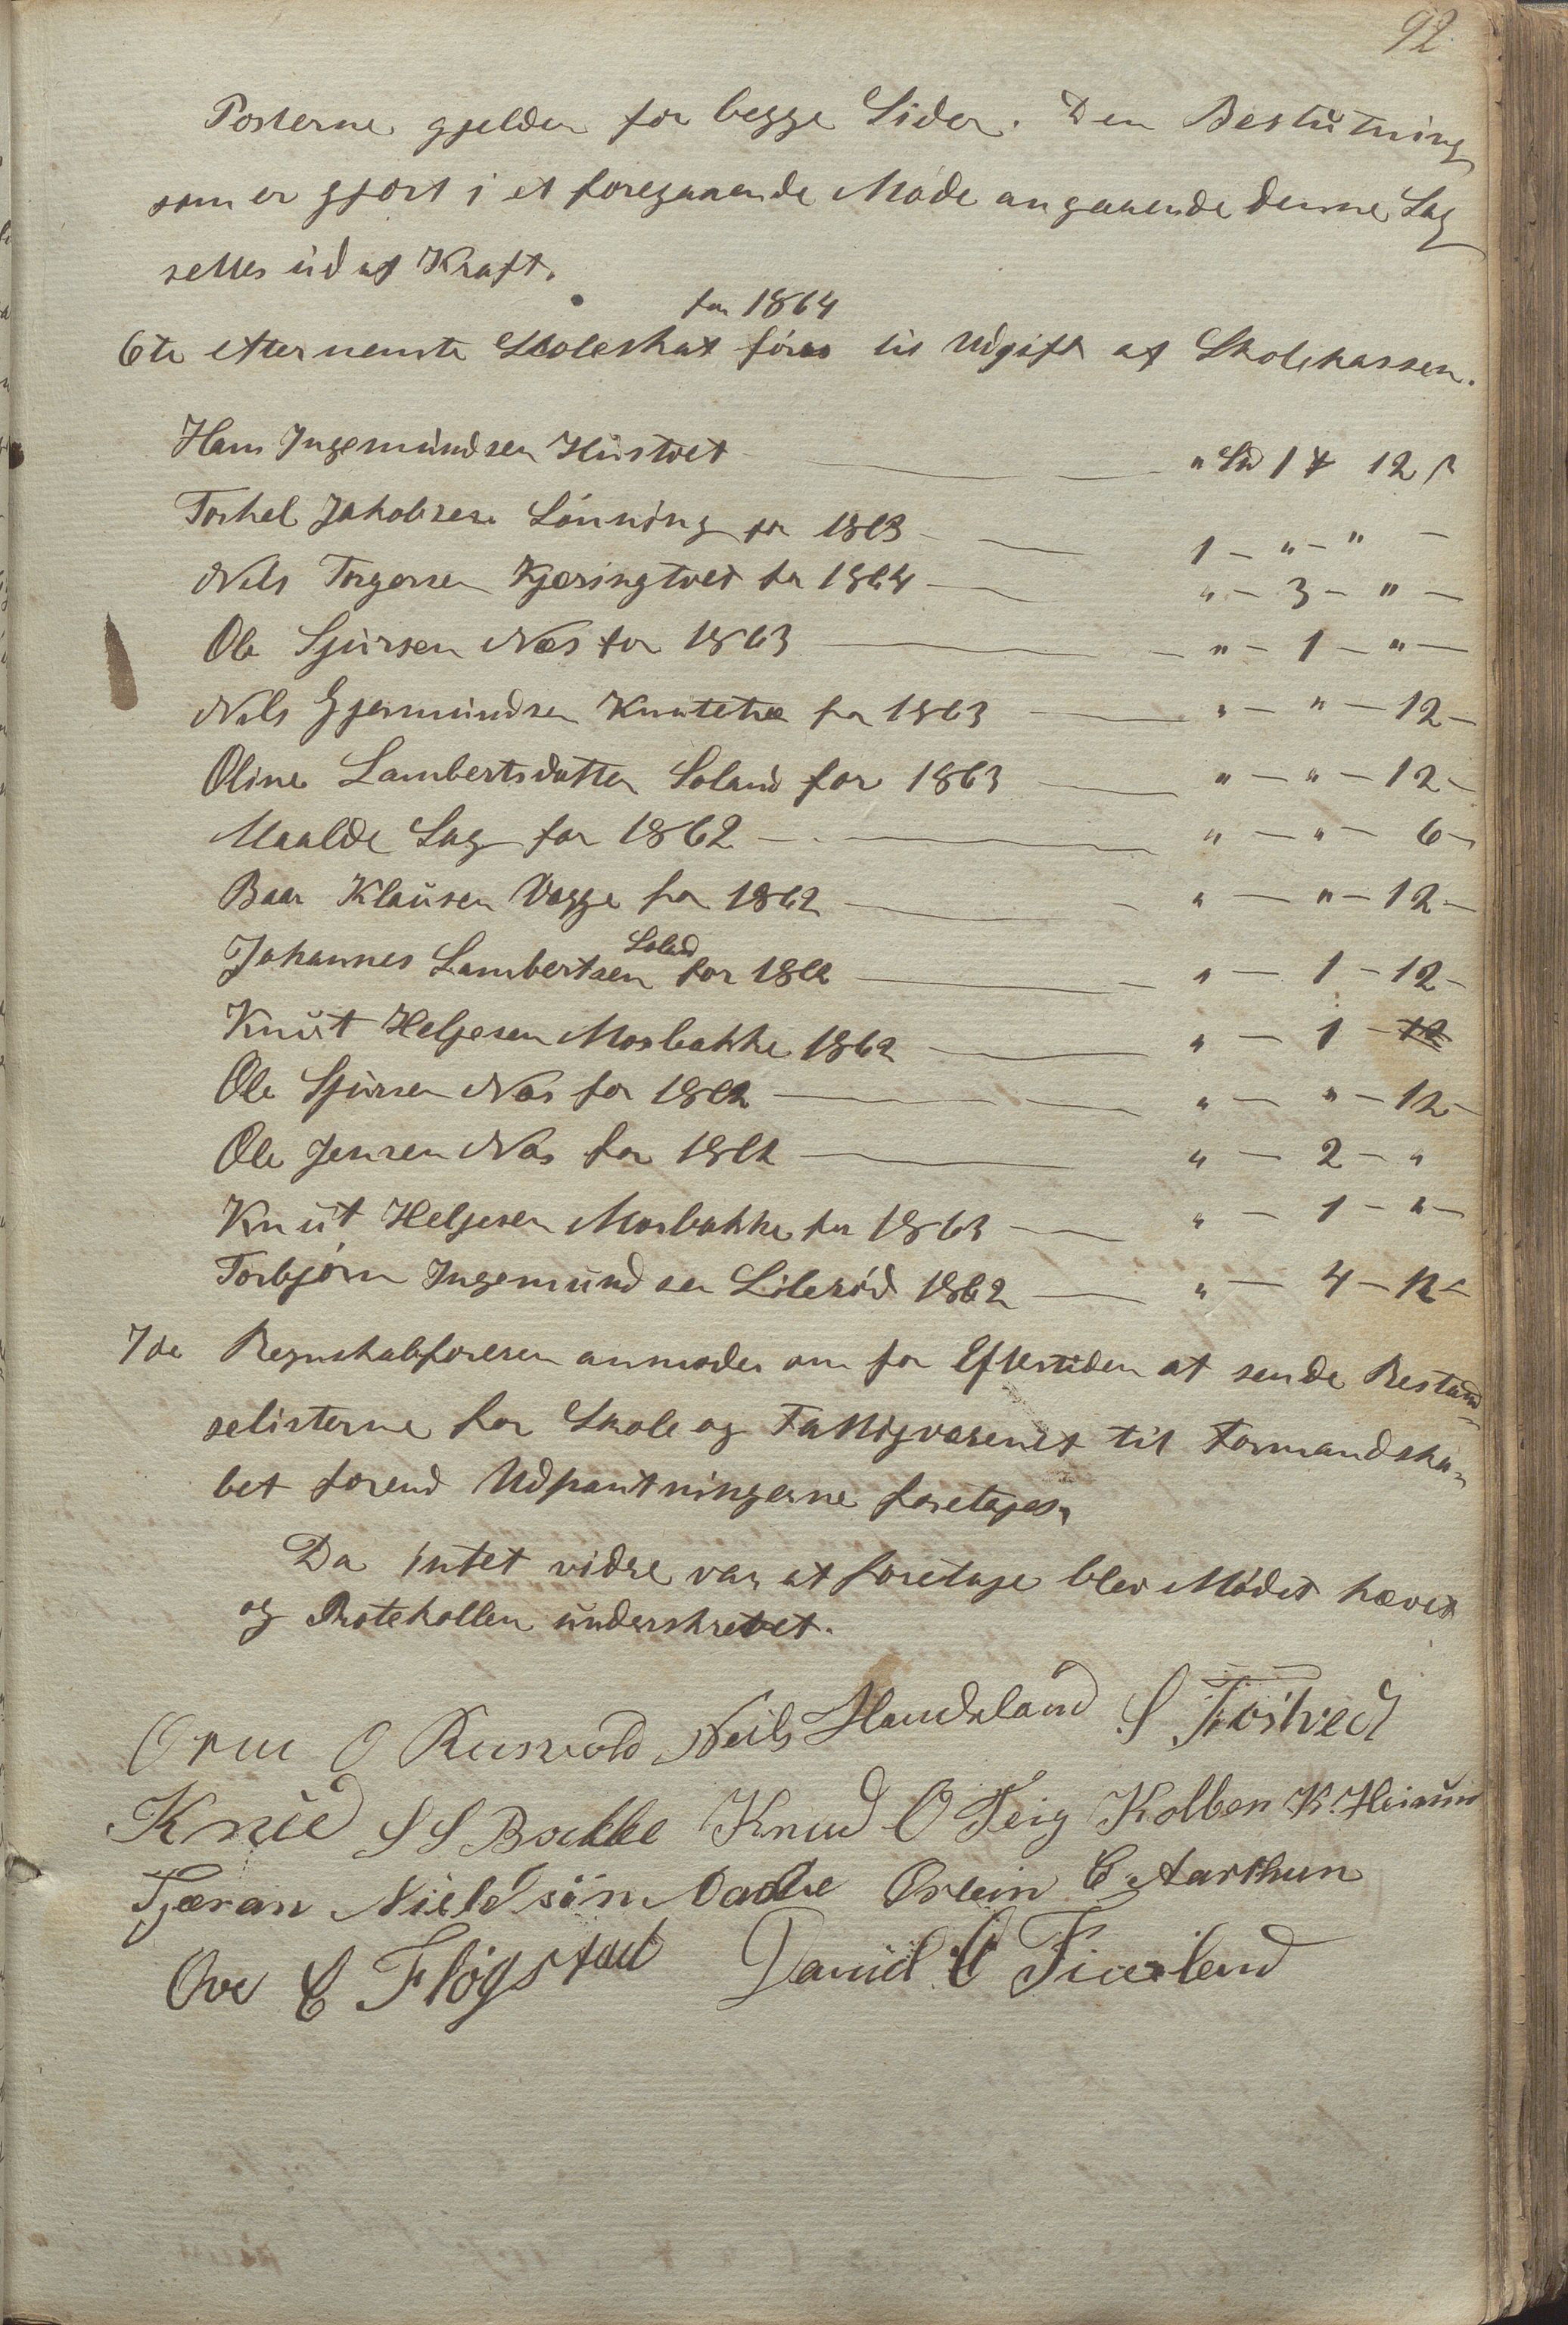 92
Posterne gjelder for begge Sider. Den Beslutning
som er gjort i et foregaaende Møde angaaende denne Sag
settes ud af Kraft.
for 1864
6te efternevnte Skoleskat føres til Udgift af Skolekassen.
Hans Ingemundsen Hustvet " 1 12 ß
Torkel Jakobsen Lønning for 1863 1 - " - " -
Nils Torgersen Kjeringtvet for 1864 " - 3 - " -
Ole Sjursen Næs for 1863 " - 1 - " -
Nils Gjermundsen Knutetræ for 1863 " - " - 12 -
Oline Lambertsdatter Soland for 1863 " - " - 12 -
Maalde Sag for 1862 " - " - 6 -
Baar Klausen Vagge for 1862 " - " - 12 -
Soland
Johannes Lambertsen for 1862 " - 1 - 12 -
Knut Heljesen Mosbakke 1862 " - 1 - 12
Ole Sjursen Næs for 1862 " - " - 12 -
Ole Jensen Næs for 1862 " - 2 - "
Knut Heljesen Mosbakke for 1863 " - 1 - " -
Torbjørn Ingemundsen Lilerød 1862 " - 4 - 12 -
7de Regnskabsføreren anmodes om for Eftertiden at sende Restand-
selisterne for Skole og Fattigvæsenet til Formandska-
bet førend Udpantningerne foretages.
Da intet vidre var at foretage blev Mødet hævet
og Protokollen underskrevet.
Orm O Neils Handeland S Tostved
Knud S S Bakke Knud O Teig Kolben K. Heimun
Tjæran Nielssøn Østein E Aarthun
Ove E Fløgstad Daniel O Fiveland